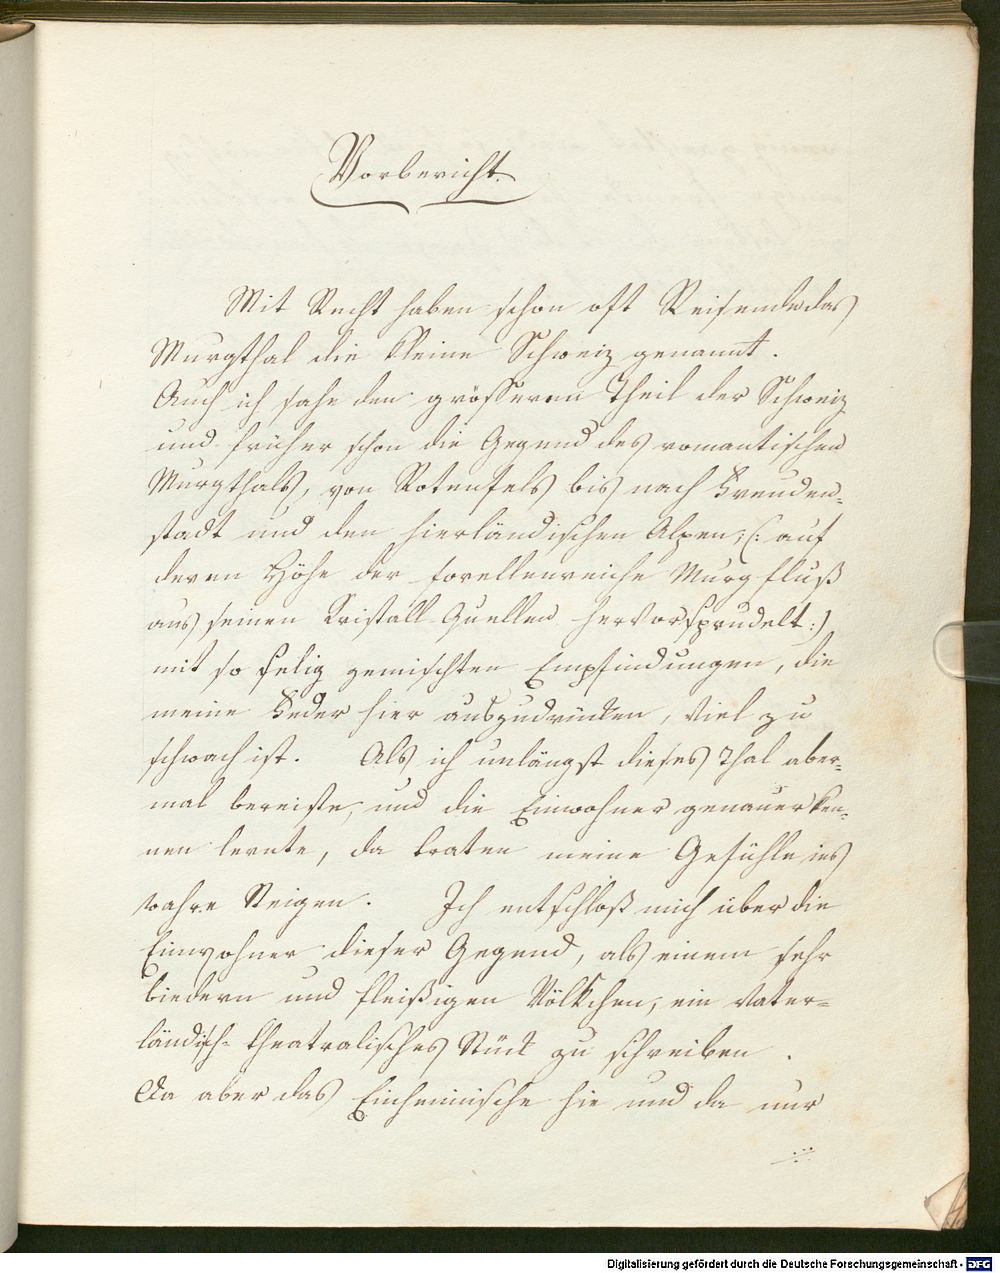 Vorbericht.
Mit Recht haben schon oft Reisende das
Murgthal die kleine Schweiz genannt.
Auch ich sahe den grösseren Theil der Schweiz
und früher schon die Gegend des romantischen
Murgthals, von Rotenfels bis nach Freuden=
stadt und den hierländischen Alpen; (: auf
deren Höhe der forellenreiche Murgfluß
aus seinen Kristall-Quellen hervorsprudelt :)
mit so selig gemischten Empfindungen, die
meine Feder hier auszudrücken, viel zu
schwach ist. Als ich unlängst dieses Thal aber=
mal bereiste, und die Einwohner genauer ken=
nen lernte, da traten meine Gefühle ins
wahre Steigen. Ich entschloß mich über die
Einwohner dieser Gegend, als einem sehr
biedern und fleißigen Völkchen, ein Vater=
ländisch=theatralisches Stück zu schreiben.
Da aber das Einheimische hie und da nur
Digitalisierung gefördert durch die Deutsche Forschungsgemeinschaft - DFG